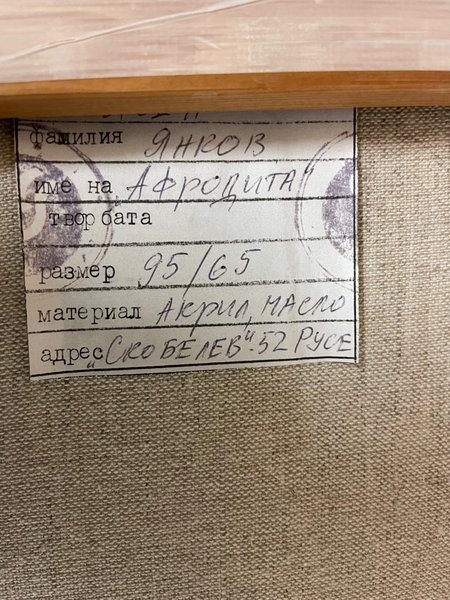 фамилия ЯНКОВ
име на АФРОДИТА"
творбата
размер 95/65
материал АКРИЛ, МАСЛО
адрес „СКОБЕЛЕВ" 52 РУСЕ